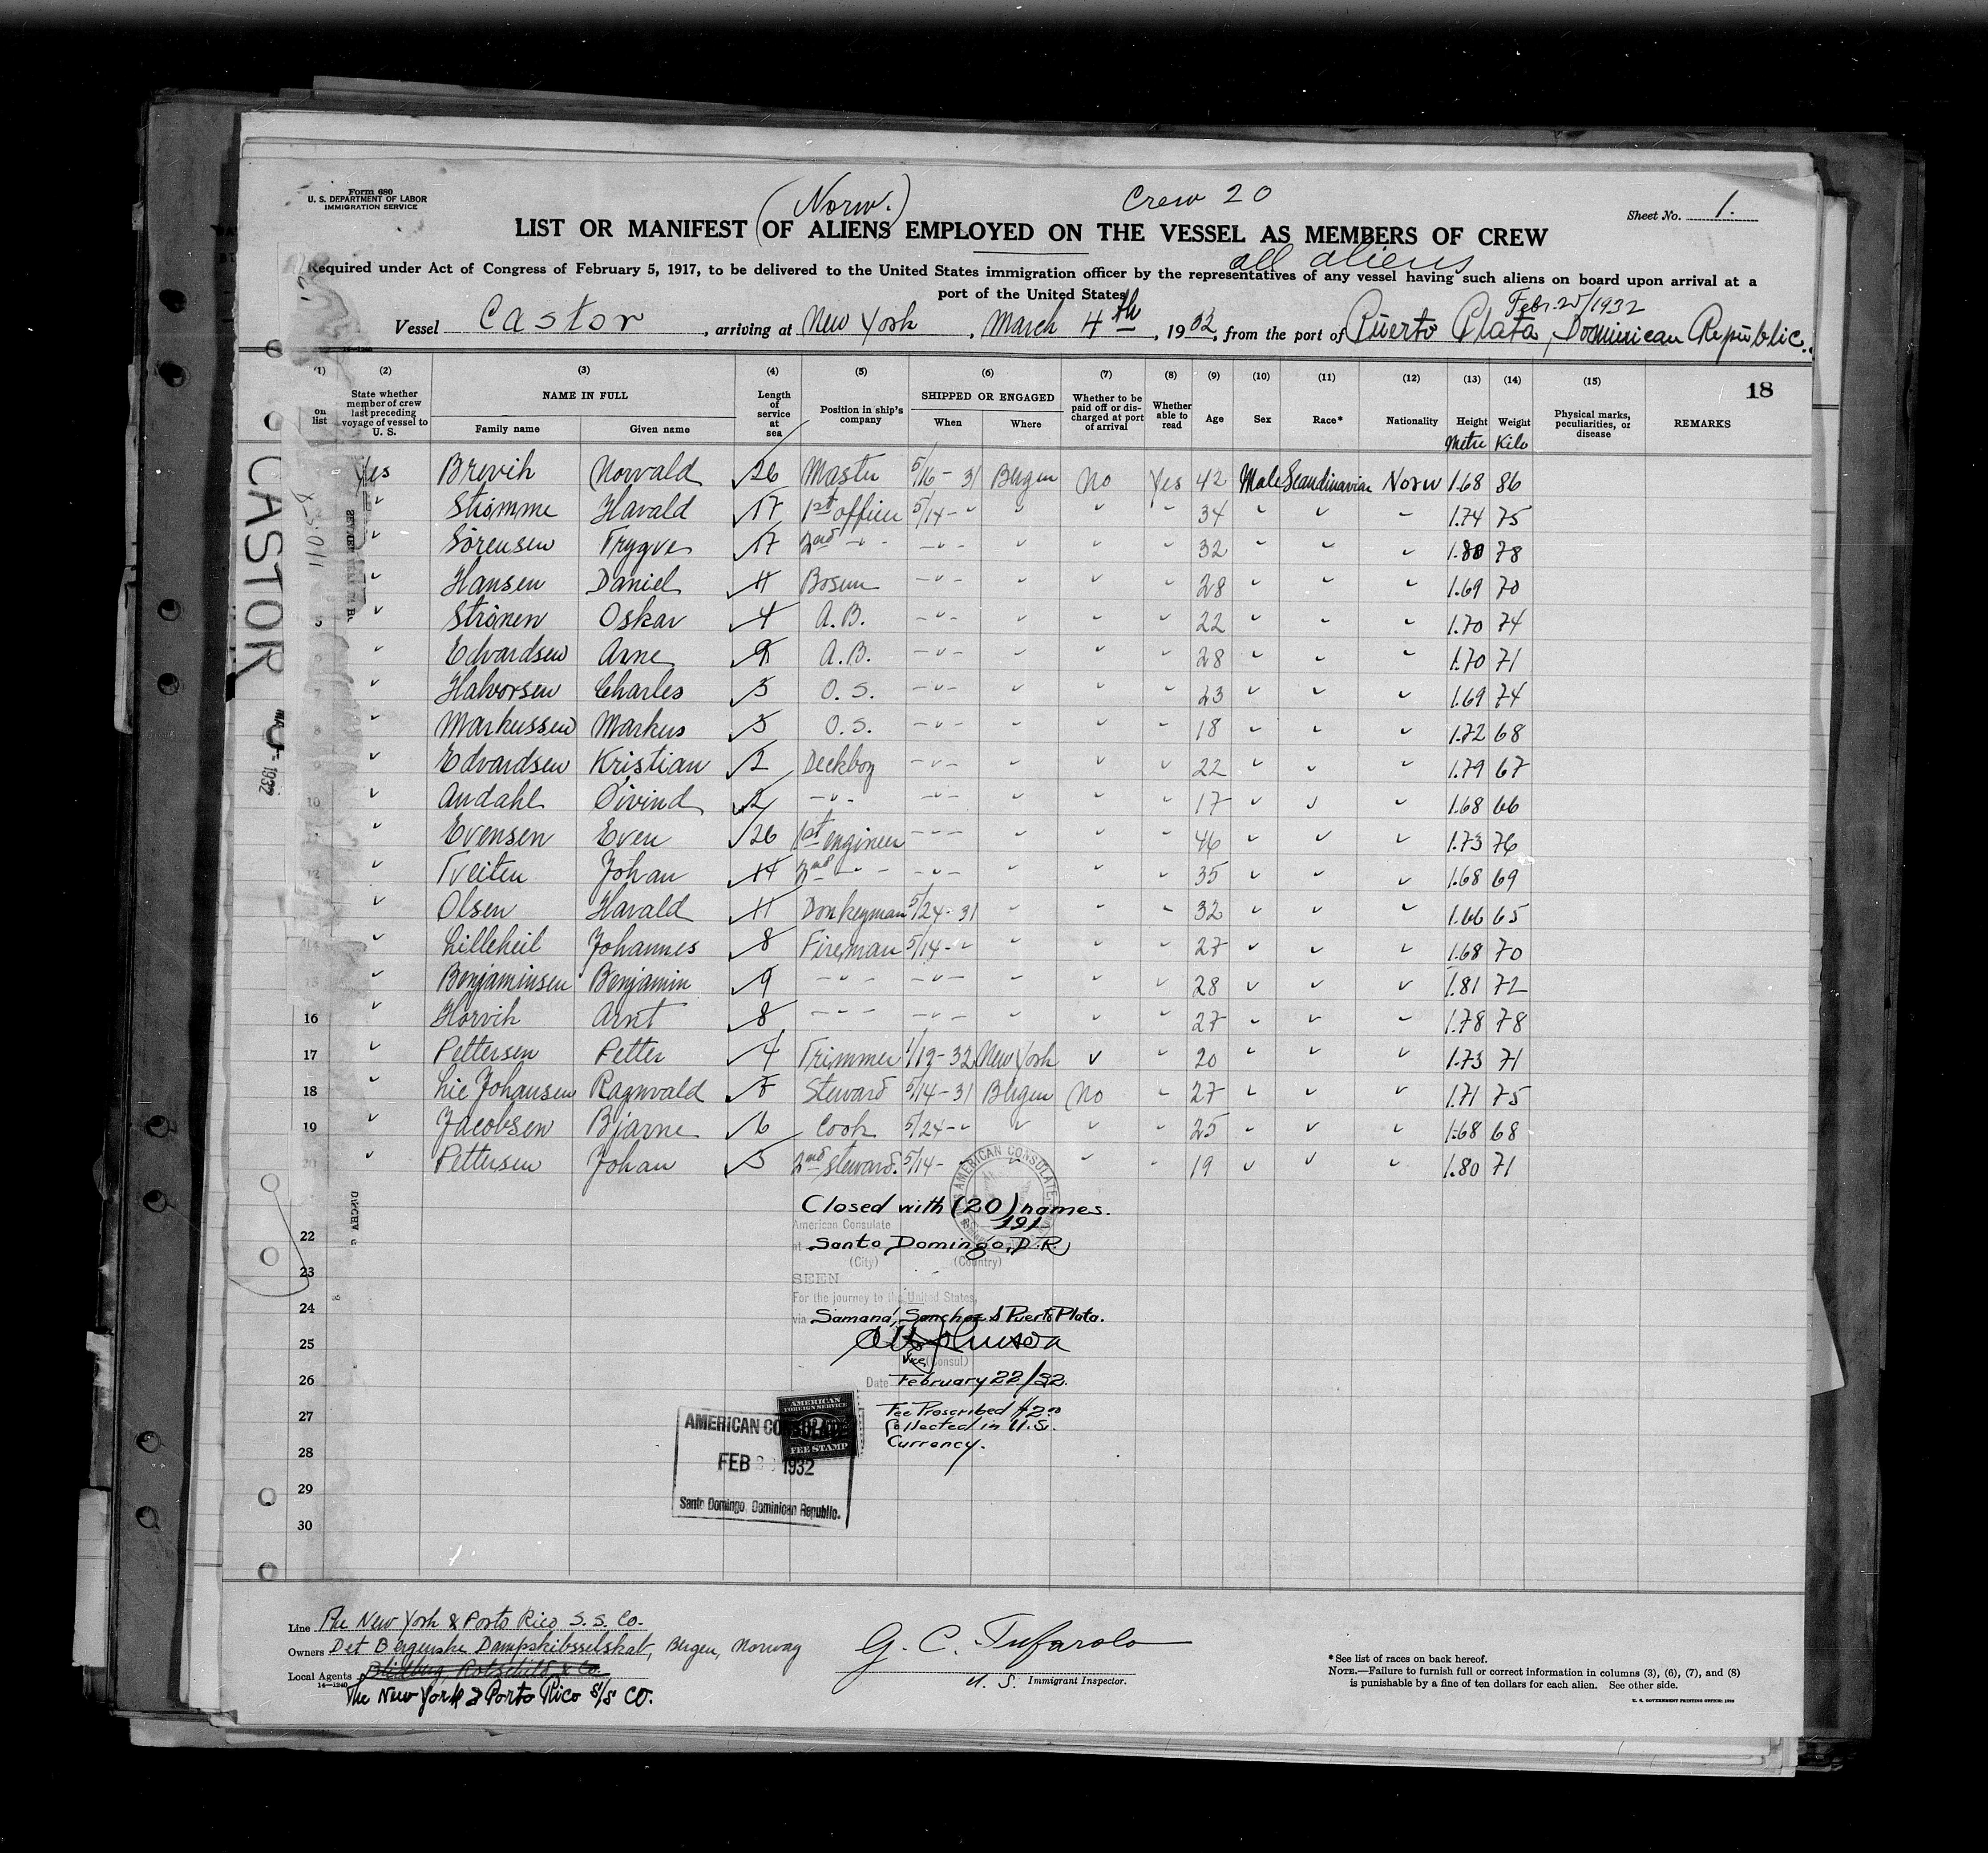 Form 680
U. S. DEPARTMENT OF LABOR
IMMIGRATION SERVICE
(Norw.)
Crew 20
Sheet No. 1.
LIST OR MANIFEST OF ALIENS EMPLOYED ON THE VESSEL AS MEMBERS OF CREW
all aliens
Required under Act of Congress of February 5, 1917, to be delivered to the United States immigration officer by the representatives of any vessel having such aliens on board upon arrival at a
port of the United States
Febr. 25/1932
Vessel Castor, arriving at New York, March 4th, 1932, from the port of Puerto Plata, Dominican Republic.
(1) (2) (3) (4) (5) (6) (7) (8) (9) (10) (11) (12) (13) (14) (15) 18
on list State whether member of crew last preceding voyage of vessel to U. S. NAME IN FULL Family name Given name Length of service at sea Position in ship's company SHIPPED OR ENGAGED When Where Whether to be paid off or discharged at port of arrival Whether able to read Age Sex Race* Nationality Height Metre Weight Kilo Physical marks, peculiarities, or disease REMARKS
Yes Brevik Norvald 26 Master 5/16 - 31 Bergen No Yes 42 Male Scandinavian Norw 1.68 86
" Strømme Harald 17 1st officer 5/14 - " " " " 34 " " " 1.74 75
" Sörensen Trygve 17 2nd - " - - " - " " " 32 " " " 1.80 78
" Hansen Daniel 11 Bosun - " - " " " 28 " " " 1.69 70
5 " Strönen Oskar 4 A.B. - " - " " " 22 " " " 1.70 74
" Edvardsen Arne 9 A.B. - " - " " " 28 " " " 1.70 71
7 " Halvorsen Charles 5 O.S. - " - " " " 23 " " " 1.69 74
8 " Markussen Markus 3 O.S. - " - " " " 18 " " " 1.72 68
" Edvardsen Kristian 2 Deckboy - " - " " " 22 " " " 1.79 67
10 " Andahl Öivind 2 - " - - " - " " " 17 " " " 1.68 66
" Evensen Even 26 1st engineer - " - " " " 46 " " " 1.73 76
12 " Tveiten Johan 14 2nd - " - - " - " " " 35 " " " 1.68 69
" Olsen Harald 11 Donkeyman 5/24 - 31 " " " 32 " " " 1.66 65
14 " Lilleheil Johannes 8 Fireman 5/14 - " " " " 27 " " " 1.68 70
15 " Benjaminsen Benjamin 9 - " - - " - " " " 28 " " " 1.81 72
16 " Horvik Arnt 8 - " - - " - " " " 27 " " " 1.78 78
17 " Pettersen Petter 4 Trimmer 1/19 - 32 New York " " 20 " " " 1.73 71
18 " Lie Johansen Ragnvald 8 Steward 5/14 - 31 Bergen No " 27 " " " 1.71 75
19 " Jacobsen Bjarne 6 Cook 5/24 - " " " " 25 " " " 1.68 68
20 " Pettersen Johan 3 2nd steward. 5/14 - " " " " 19 " " " 1.80 71
22
23
24
25
26
27
28
29
30
AMERICAN CONSULATE
Closed with (20) names.
American Consulate 191
at Santo Domingo, D.R.
(City) (Country)
SEEN
For the journey to the United States,
via Samaná, Sanchez & Puerto Plata.
Vice (Consul)
Date February 22/32.
Fee Prescribed $2.00
Collected in U.S.
Currency.
AMERICAN
FOREIGN SERVICE
FEE STAMP
AMERICAN CONSULATE
FEB 1932
Santo Domingo, Dominican Republic.
CASTOR
1932
Line The New York & Porto Rico S. S. Co.
Owners Det Bergenske Dampskibsselskab, Bergen, Norway
Local Agents
14-1240
The New York & Porto Rico S/S CO.
G. C. Tufarolo
U. S. Immigrant Inspector.
*See list of races on back hereof.
NOTE.—Failure to furnish full or correct information in columns (3), (6), (7), and (8)
is punishable by a fine of ten dollars for each alien. See other side.